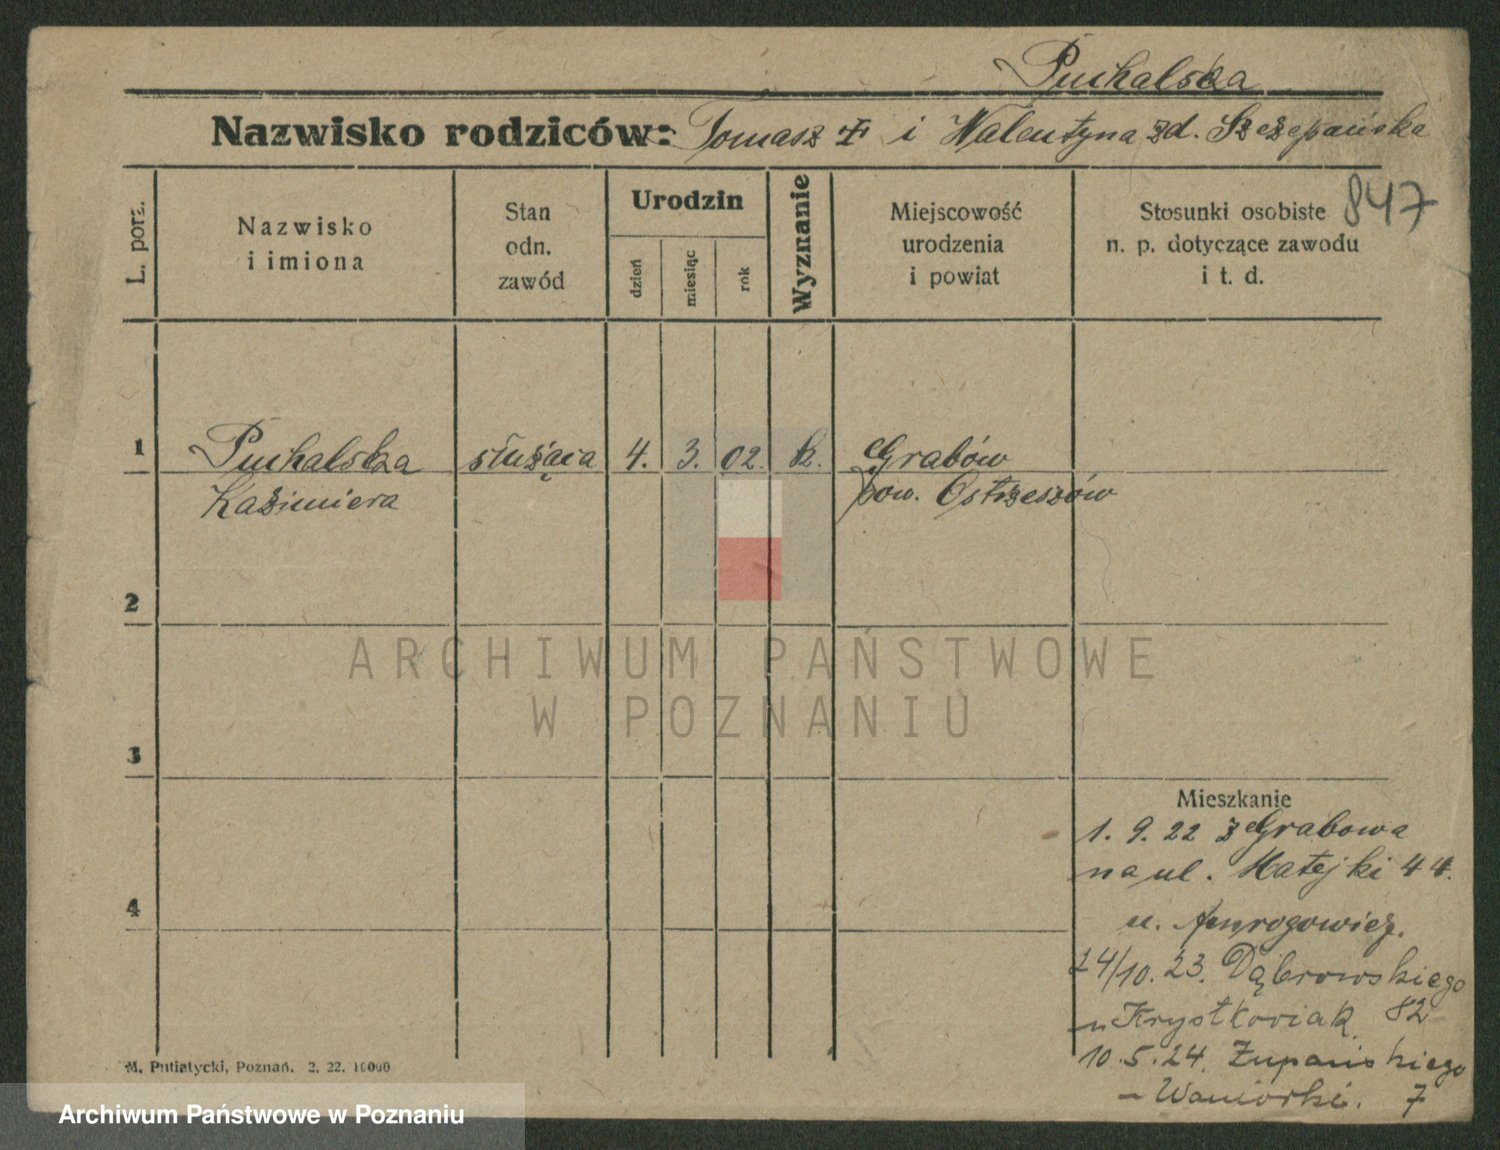 Puchalska
Nazwisko rodziców: Tomasz i Walentyna zd. Szczepańska
847
L. porz.
Nazwisko
i imiona
Stan
odn.
zawód
Urodzin
dzień
miesiąc
rok
Wyznanie
Miejscowość
urodzenia
i powiat
Stosunki osobiste
n. p. dotyczące zawodu
i t. d.
1 Puchalska służąca 4. 3. 02. k. Grabów
Kazimiera pow. Ostrzeszów
2
3
4
ARCHIWUM PAŃSTWOWE
W POZNANIU
Mieszkanie
1. 9. 22 z Grabowa
na ul. Matejki 44.
u.
24/10. 23. Dąbrowskiego
u Krystkowiak 82
10. 5. 24. Żupańskiego
7
M. Putiatycki, Poznań. 2. 22. 10000
Archiwum Państwowe w Poznaniu